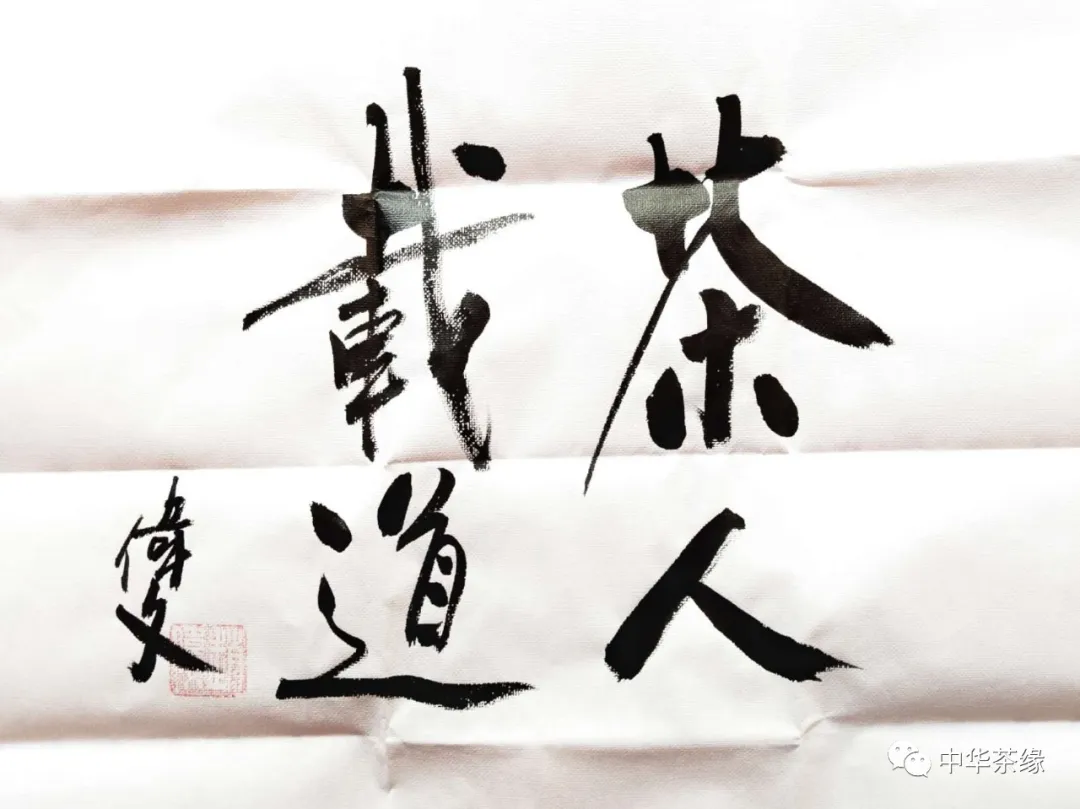 茶人
載道
偉文
中华茶缘